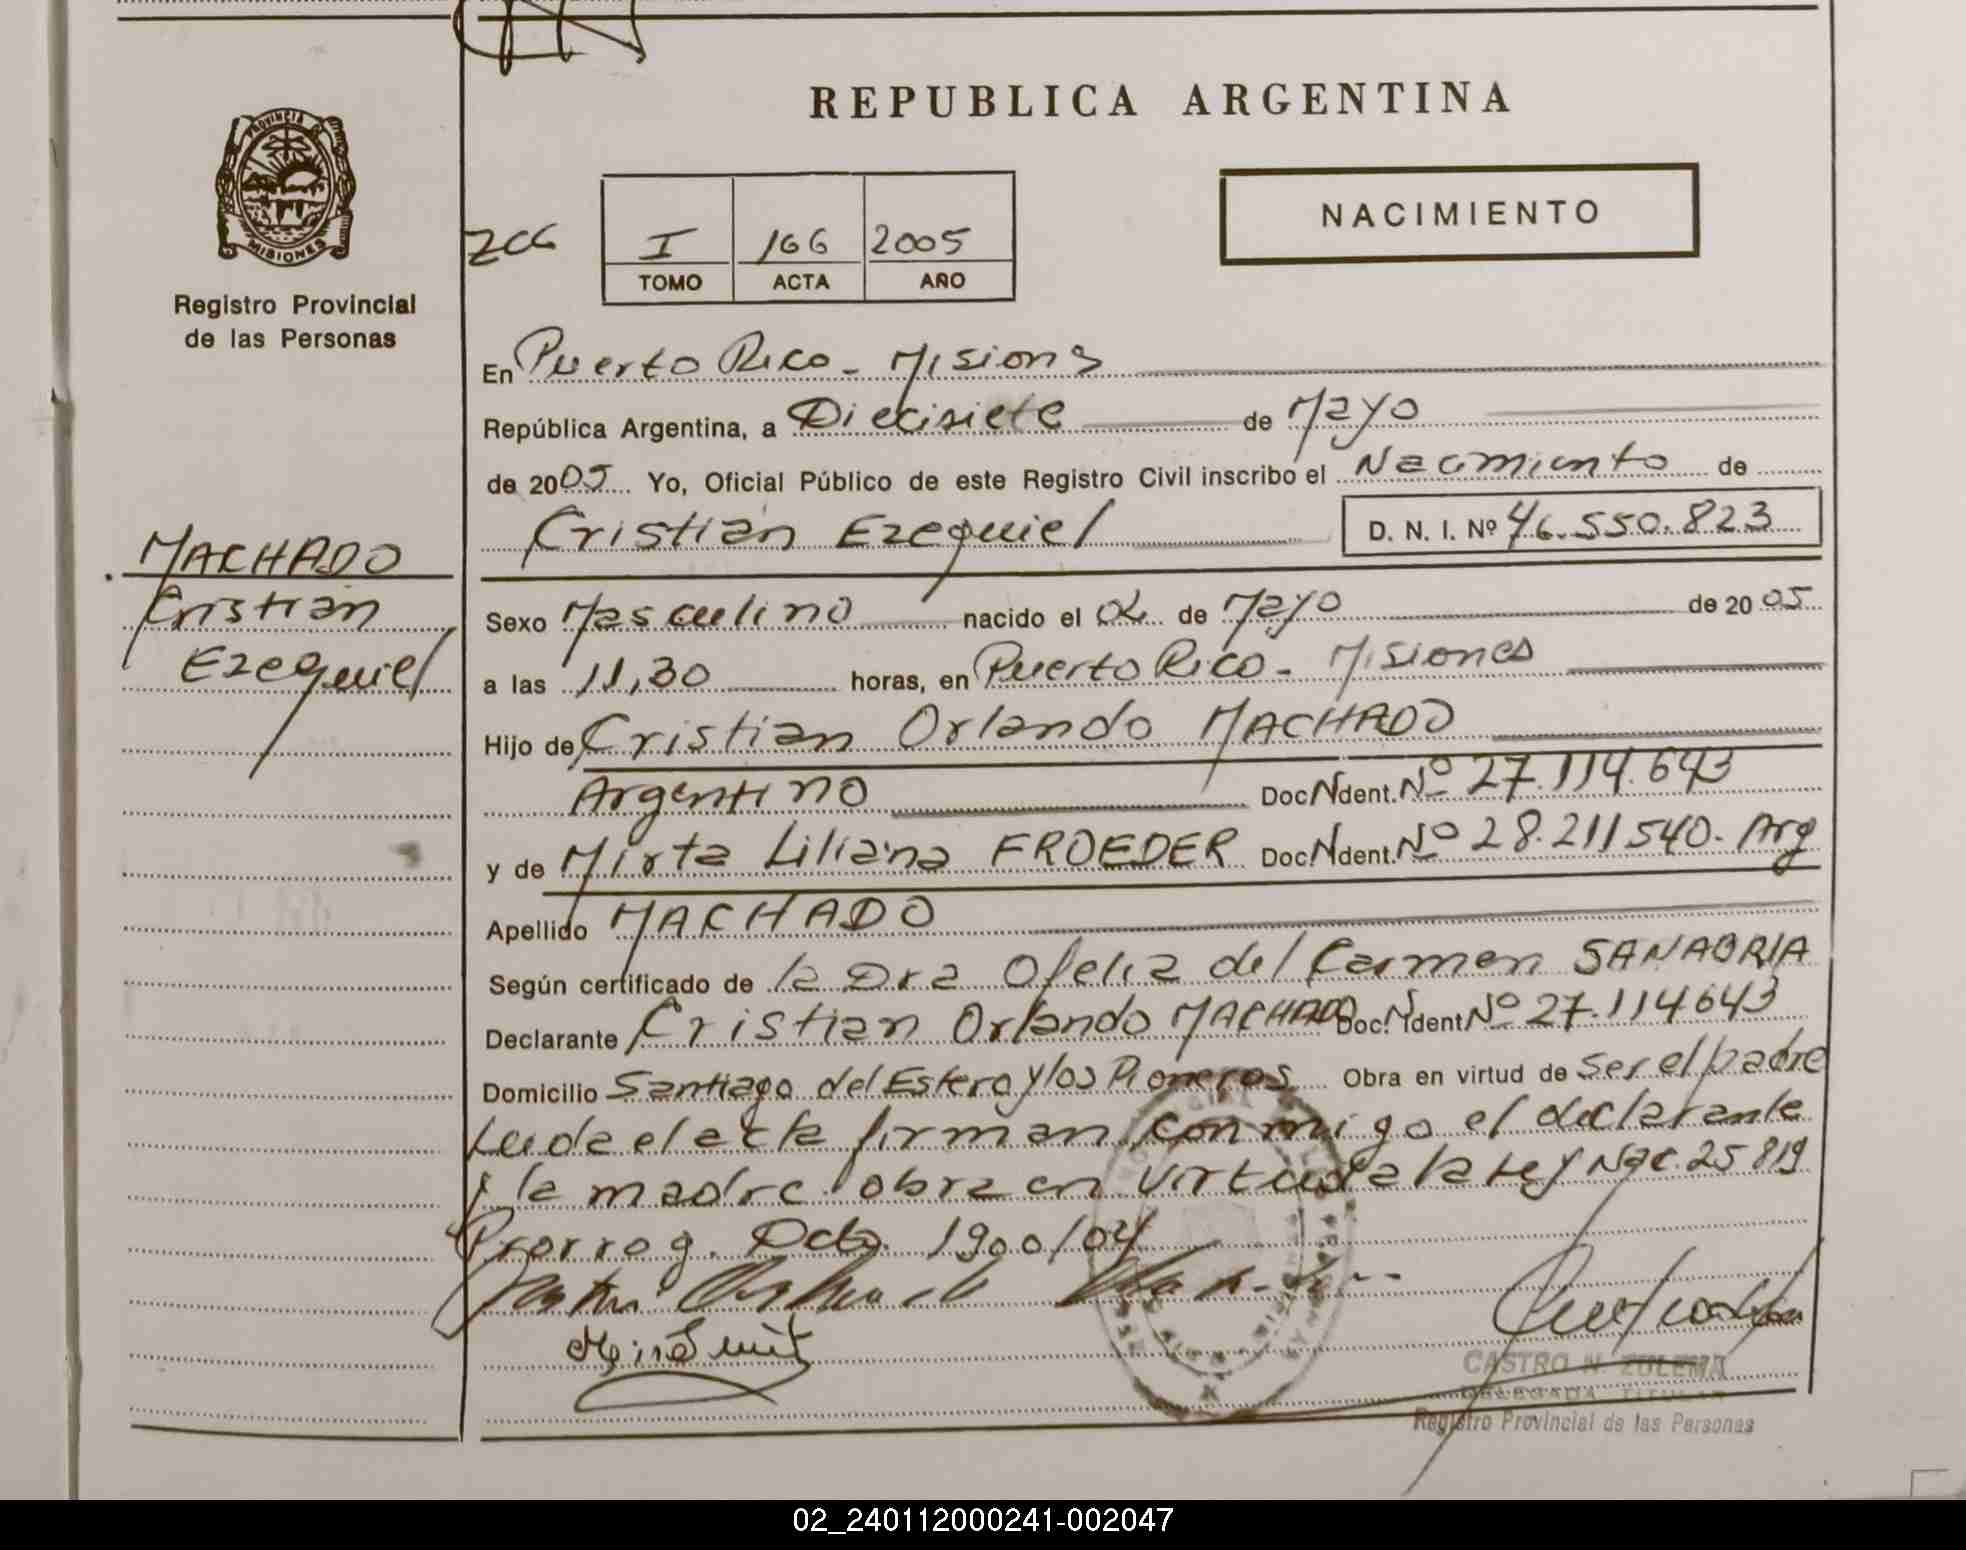 REPUBLICA ARGENTINA
PROVINCIA DE
MISIONES
Registro Provincial
de las Personas
NACIMIENTO
I 166 2005
TOMO ACTA AÑO
En Puerto Rico - Misions
República Argentina, a Diecisiete de Mayo
de 2005 Yo, Oficial Público de este Registro Civil inscribo el Nacimiento de
Cristian Ezequiel D. N. I. Nº 46.550.823
MACHADO
Cristian
Ezequiel
Sexo Masculino nacido el 02 de Mayo de 2005
a las 11,30 horas, en Puerto Rico - Misiones
Hijo de Cristian Orlando MACHADO
Argentino Doc. Ident. Nº 27.114.643
y de Mirta Liliana FROEDER Doc. Ident. Nº 28.211540. Arg
Apellido MACHADO
Según certificado de la Dra Ofelia del Carmen SANABRIA
Declarante Cristian Orlando MACHADO Doc. Ident Nº 27.114643
Domicilio Santiago del Estero y los Pioneros Obra en virtud de ser el padre
Leida el acta firman conmigo el declarante
y la madre obra en virtud a la Ley Nac. 25819
Prorrog. Dcto. 1900/04
CASTRO N. ZULEMA
DELEGADA TITULAR
Registro Provincial de las Personas
02_240112000241-002047